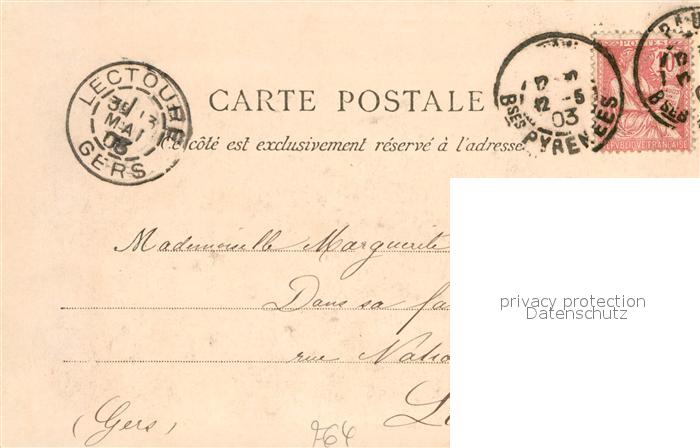 LECTOURE
MAI
03
GERS
CARTE POSTALE
Ce côté est exclusivement réservé à l'adresse
12 -5
03
Bses PYRENEES
POSTES
10
REPVBLIQVE FRANÇAISE
PAU
Bses
Mademoiselle Marguerite
Dans sa fa
rue Natio
L
(Gers)
764
privacy protection
Datenschutz